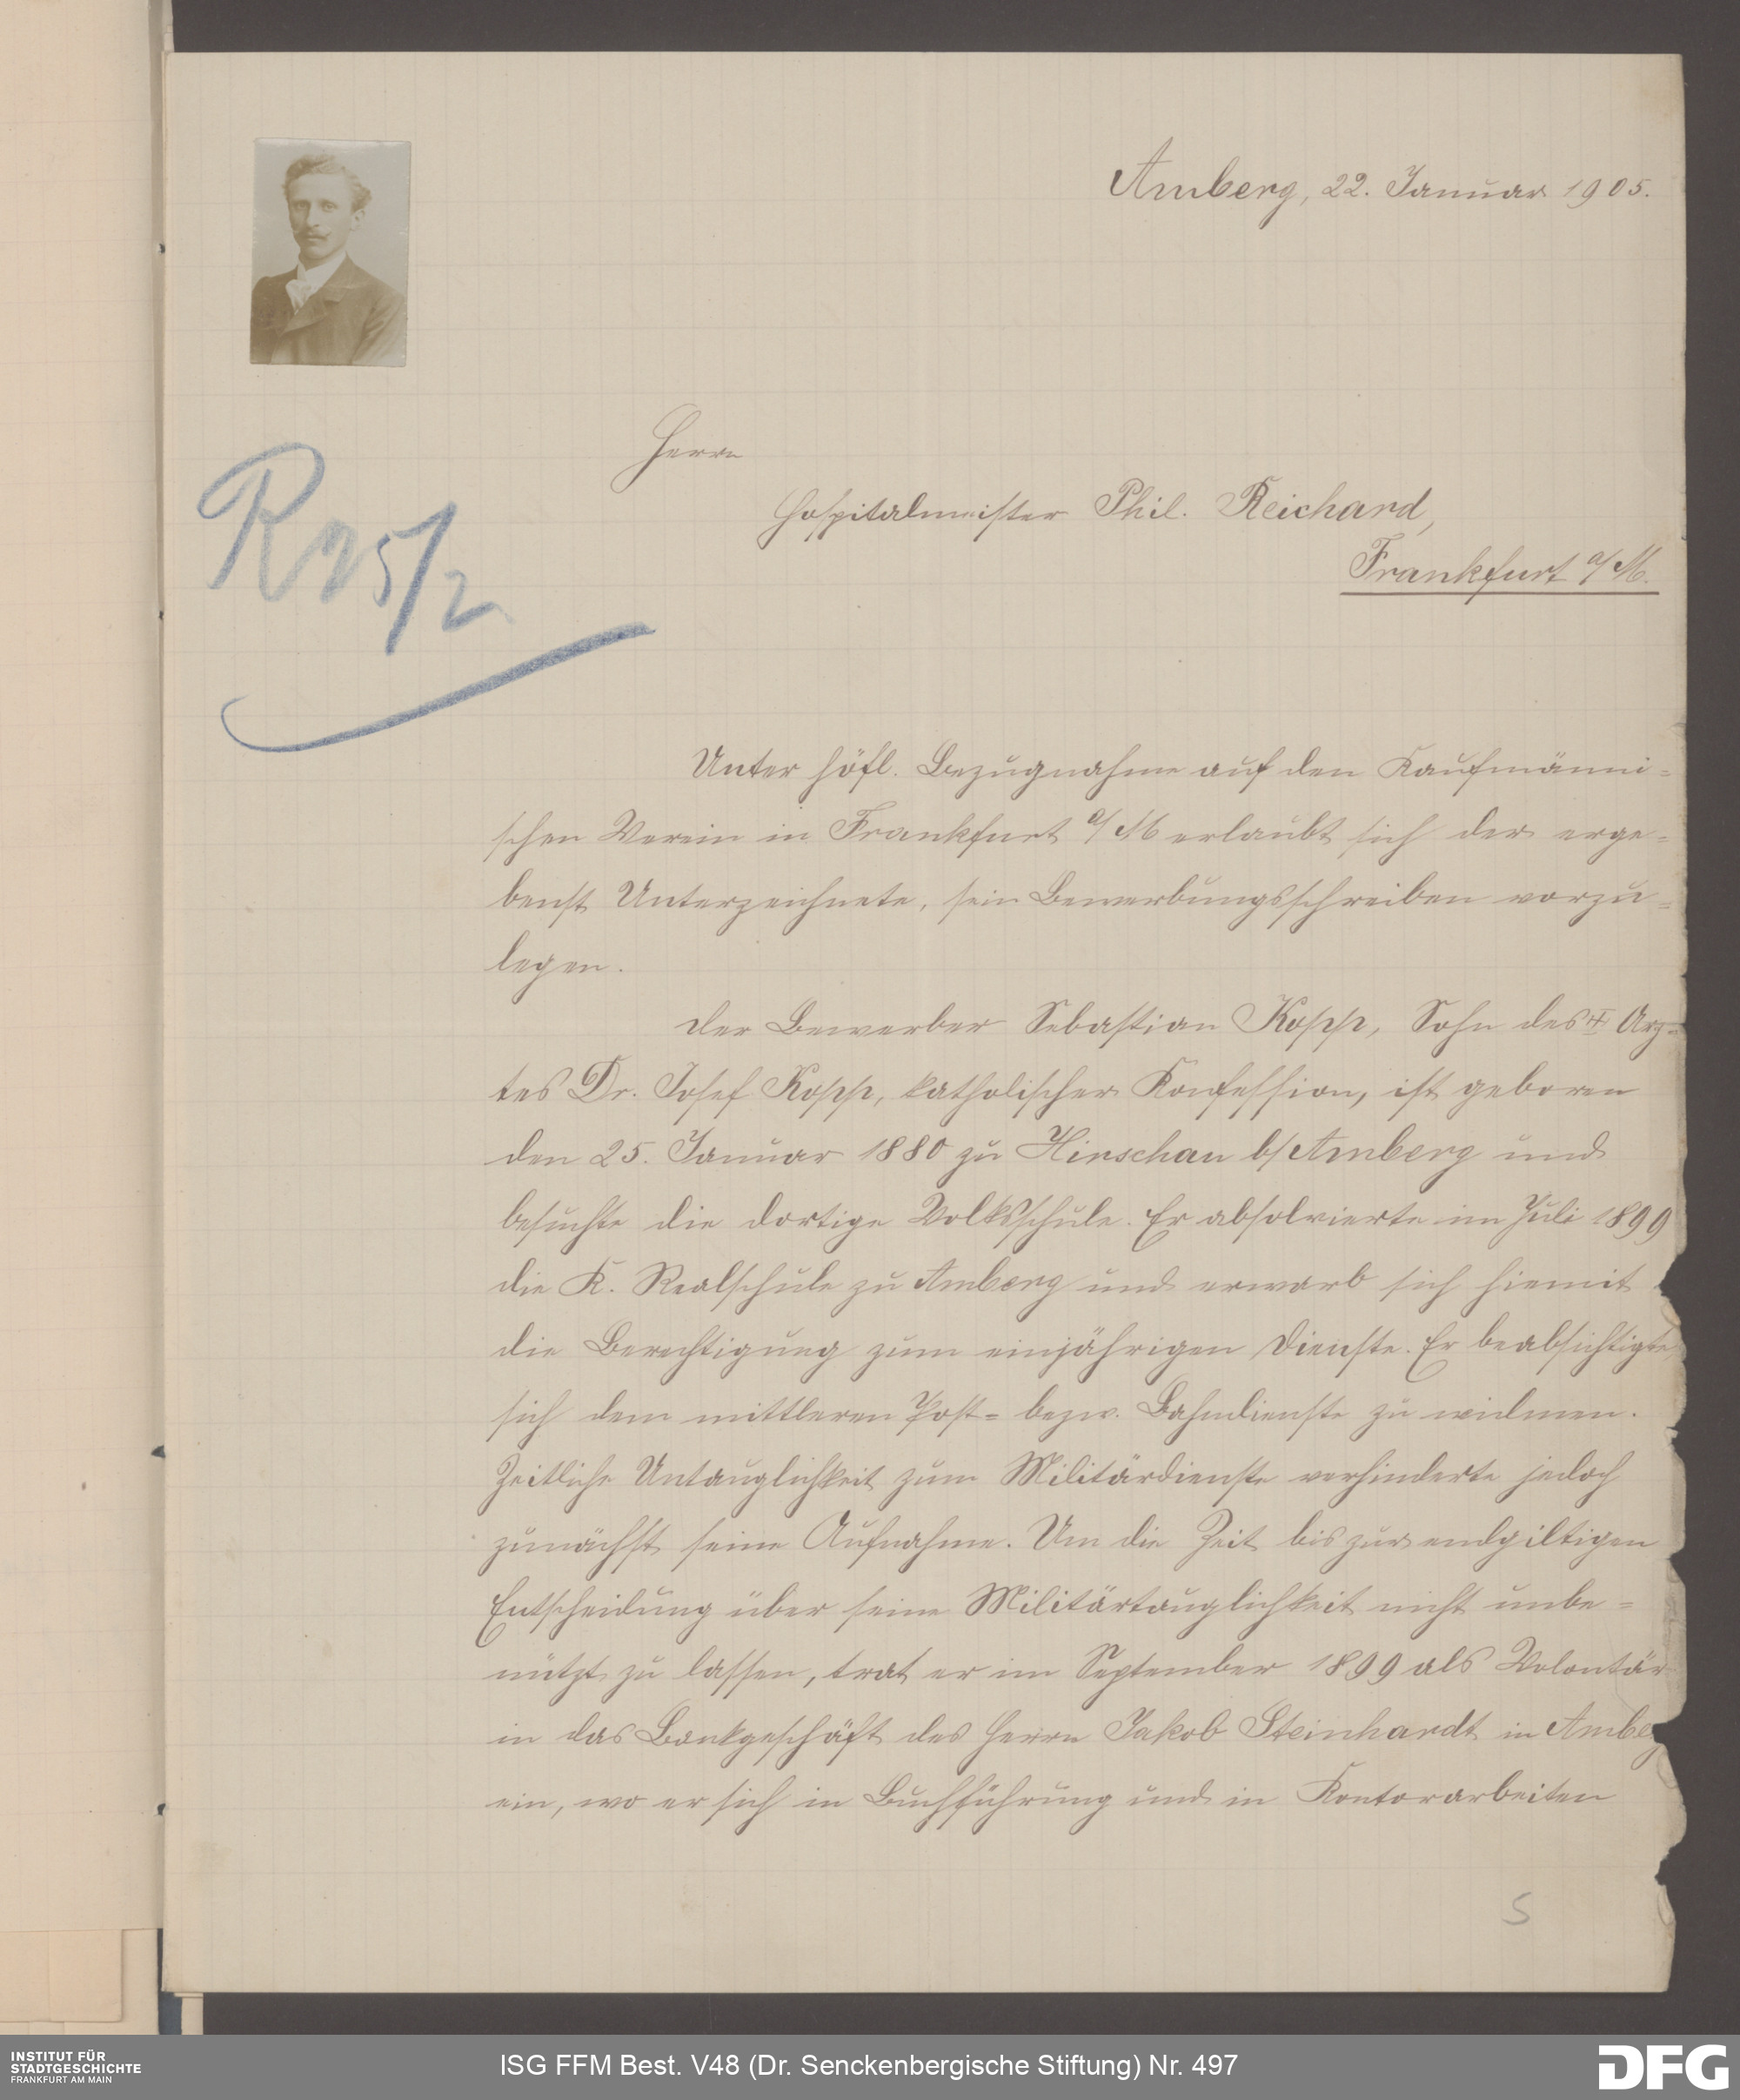 Amberg, 22. Januar 1905.
Herrn
Hospitalmeister Phil. Reichard,
Frankfurt a/M.
R 25/2
Unter höfl. Bezugnahme auf den Kaufmänni=
schen Verein in Frankfurt a/M erlaubt sich der erge=
benst Unterzeichnete, sein Bewerbungsschreiben vorzu=
legen.
Der Bewerber Sebastian Kopp, Sohn des Arz=
tes Dr. Josef Kopp, katholischer Konfession, ist geboren
den 25. Januar 1880 zu Hirschau b/Amberg und
besuchte die dortige Volksschule. Er absolvierte im Juli 1899
die K. Realschule zu Amberg und erwarb sich hiemit
die Berechtigung zum einjährigen Dienste. Er beabsichtigte,
sich dem mittleren Post= bezw. Bahndienste zu widmen.
Zeitliche Untauglichkeit zum Militärdienste verhinderte jedoch
zunächst seine Aufnahme. Um die Zeit bis zur endgiltigen
Entscheidung über seine Militärtauglichkeit nicht unbe=
nützt zu lassen, trat er im September 1899 als Volontär
in das Bankgeschäft des Herrn Jakob Steinhardt in Amberg
ein, wo er sich in Buchführung und in Kontorarbeiten
5
INSTITUT FÜR
STADTGESCHICHTE
FRANKFURT AM MAIN
ISG FFM Best. V48 (Dr. Senckenbergische Stiftung) Nr. 497
DFG